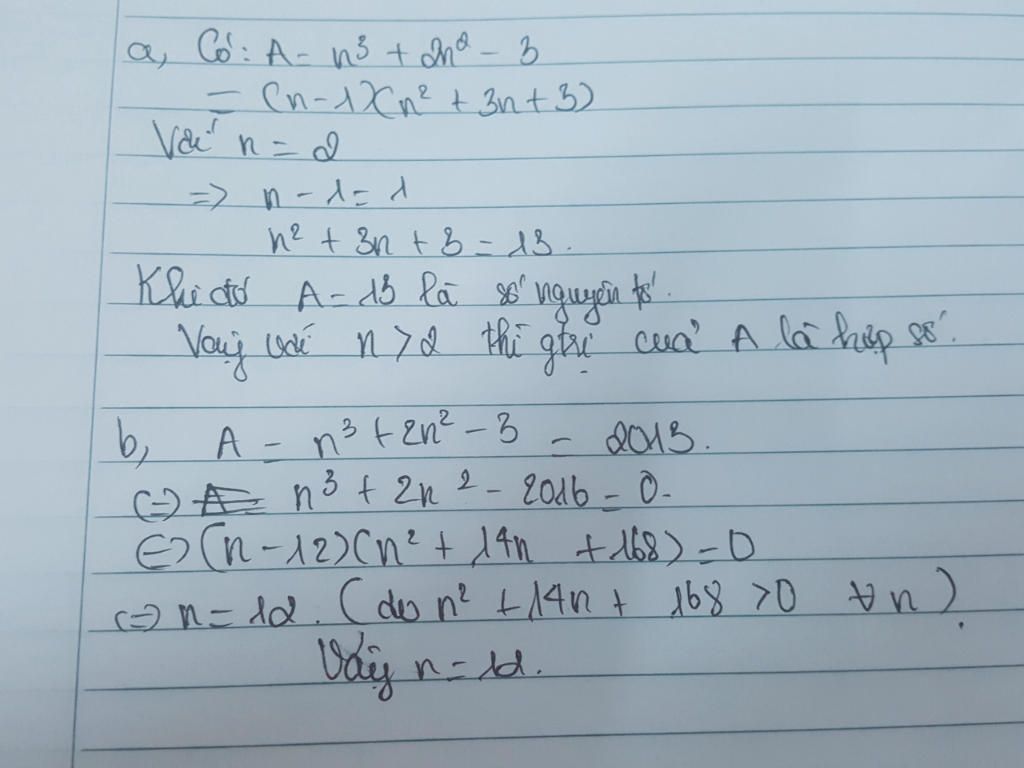 a, Có: A = n³ + 2n² - 3
= (n-1)(n² + 3n + 3)
Với n = 2
=> n - 1 = 1
n² + 3n + 3 = 13.
Khi đó A = 13 là số nguyên tố.
Vậy với n > 2 thì gtrị của A là hợp số.
b, A = n³ + 2n² - 3 = 2013.
<=> n³ + 2n² - 2016 = 0.
<=> (n-12)(n² + 14n + 168) = 0
<=> n = 12. (do n² + 14n + 168 > 0 ∀n).
Vậy n = 12.